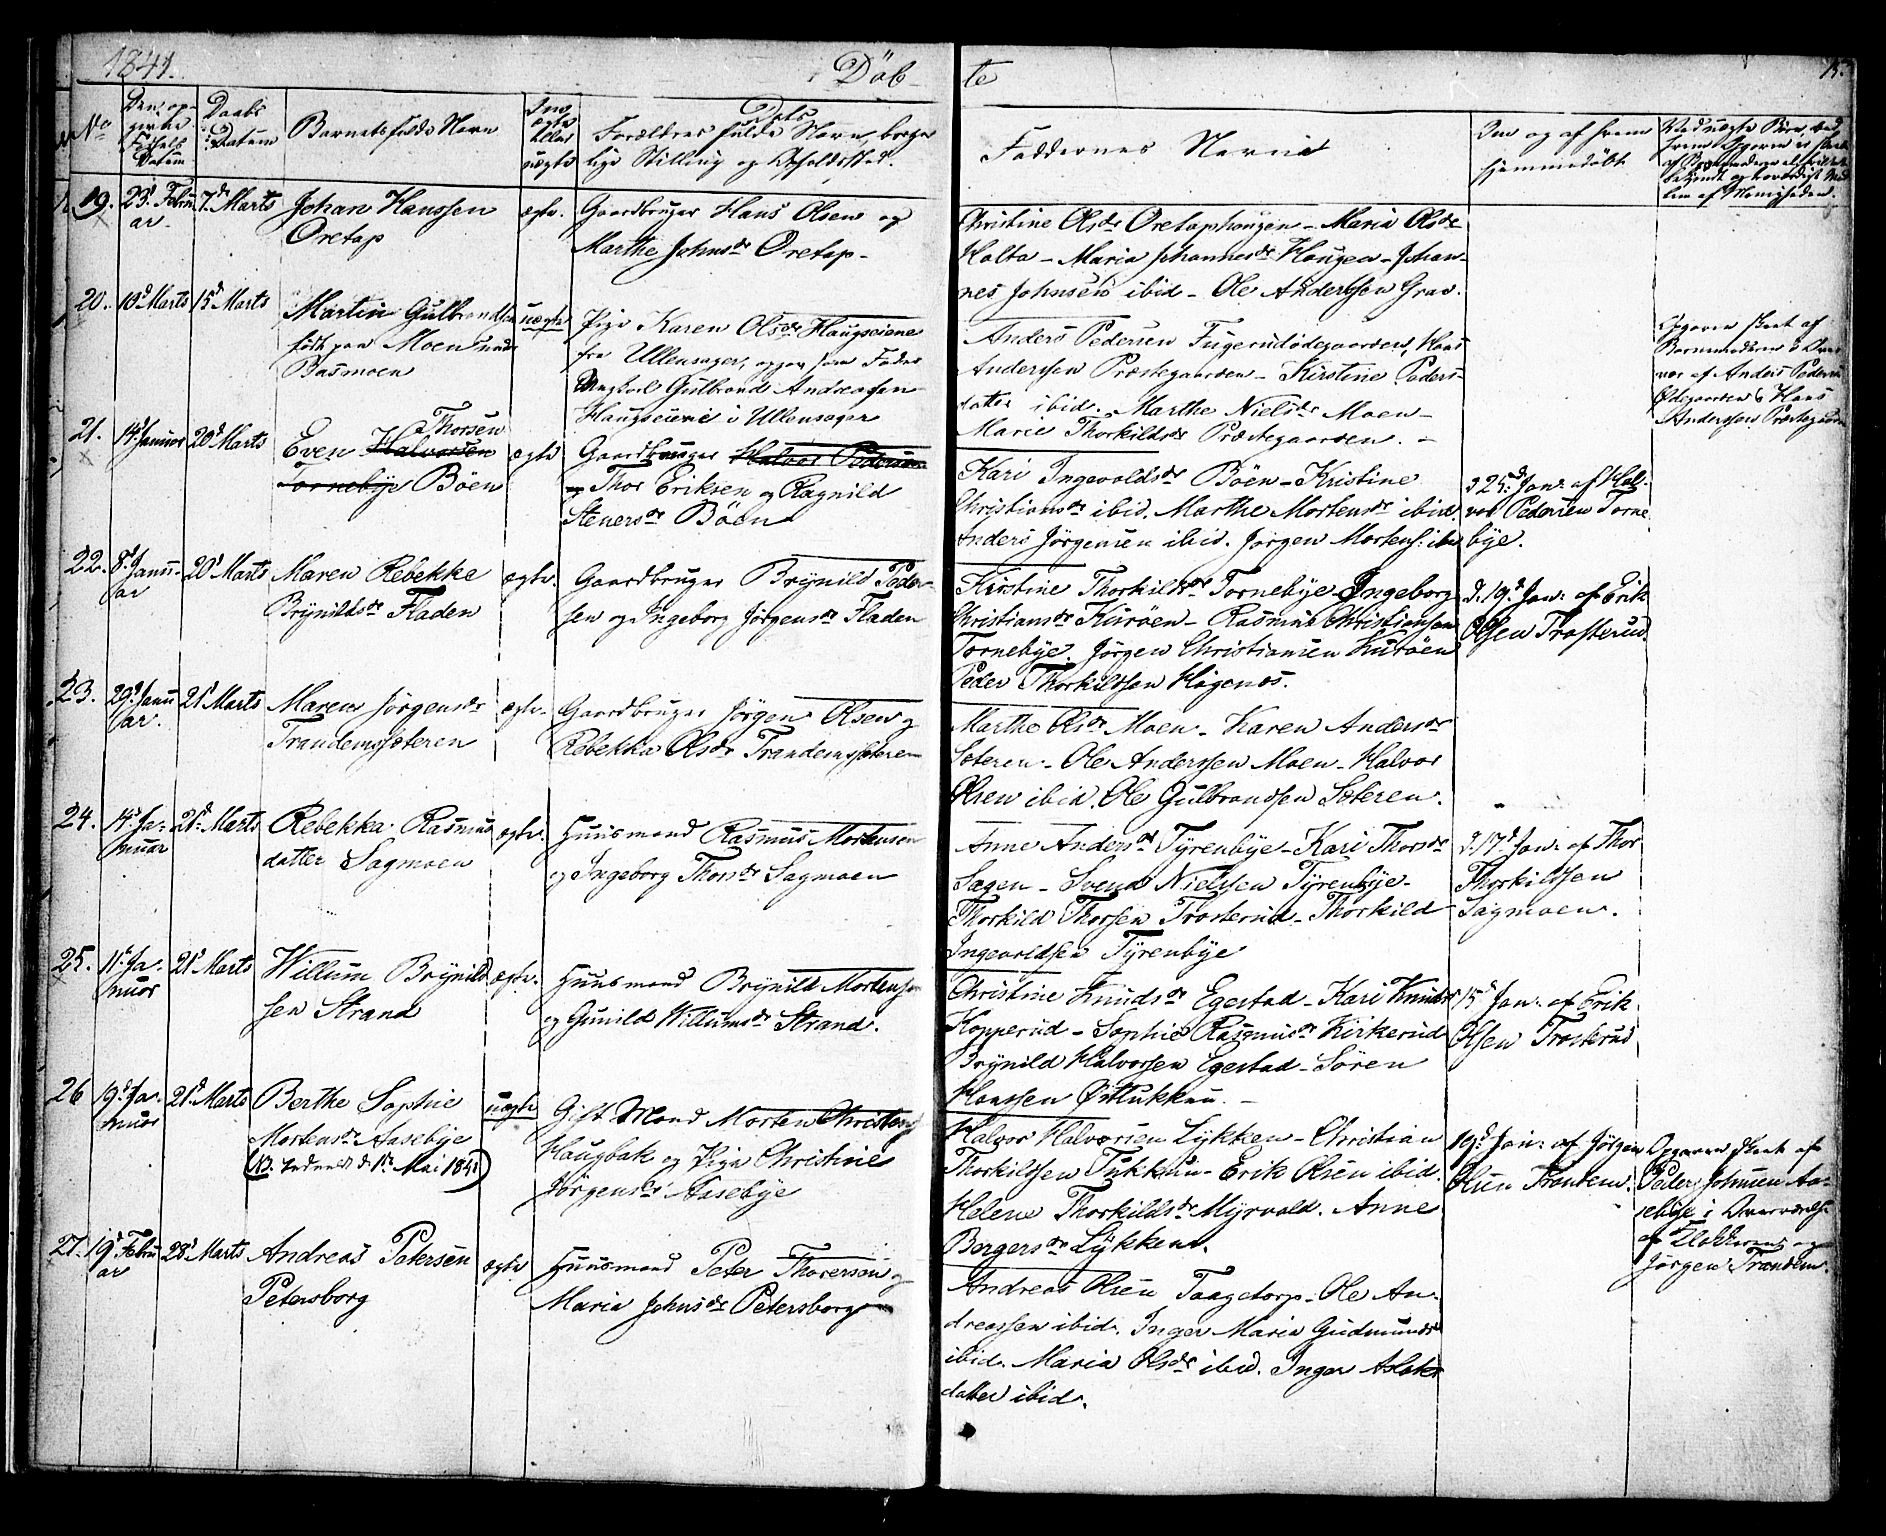 1841.
Döb
te
15.
No
Den opgivne Fødsels Datum
Daabs Datum
Barnets fulde Navn
Om ægte eller uægte
Forældres fulde Navn, borgerlige Stilling og Opholdssted.
Faddernes Navne
Om og af hvem hjemmedöbt
19.
23d Februar
7de Marts
Johan Hanssen
Oretop
ægte.
Gaardbruger Hans Olsen og
Marthe Johnsdr Oretop.
Christine Olsdr Oretophougen - Maria Olsdr
Holta - Maria Johannesdr Haugen - Johan-
nes Johnsen ibid - Ole Anderssen Grav.
20.
10d Marts
15d Marts
Martin Gulbrandsen
födt paa Moen under
Basmoen
uægte
Pige Karen Olsdr Haugseiene
fra Ullensager, opgav som Fader
Ungkarl Gulbrand Andreassen
Haugseiene i Ullensager
Anders Pedersen Fugerudödegaarden, Hans
Anderssen Præstegaarden - Kirstine Peders-
datter ibid. Marthe Nielsdr Moen -
Marie Thorkildsdr Præstegaarden. -
Opgaven skeet af
Barnemoderen i Over
vær af Anders Pedersen
Ødegaarden & Hans
Anderssen Præstegaarden
21.
14d Januar
20d Marts
Thorsen
Even Halvorsen
Tornebye Böen
ægte
Gaardbruger Halvor Pedersen
og Thor Eriksen og Ragnild
Stenersdr Böen
Kari Ingevoldsdr Böen - Kristine
Christiansdr ibid. Marthe Mortensdr ibid.
Anders Jörgensen ibid. Jörgen Mortens: ibid
d 25d Jan: af Hal-
vor Pedersen Torne
bye.
22.
8d Janu-
ar
20d Marts
Maren Rebekke
Brynildsdr Fladen
ægte.
Gaardbruger Brynild Peder-
sen og Ingeborg Jörgensdr Fladen
Kirstine Thorkildsdr Tornebye. Ingeborg
Christiansdr Kuröen - Rasmus Christiansen
Tornebye. Jörgen Christiansen Kuröen
Peder Thorkildssen Högenæs.
d. 19d Jan: af Erik
Olsen Trosterud.
23.
29d Janu
ar.
21d Marts
Maren Jörgensdr
Trandemssæteren
ægte.
Gaardbruger Jörgen Olsen og
Rebekka Olsdr Trandemssæteren
Marthe Olsdr Moen - Karen Andersdr
Sæteren - Ole Anderssen Moen - Halvor
Olsen ibid. Ole Gulbrandsen Sæteren.
24.
14d Ja-
nuar
21d Marts
Rebekka Rasmus
datter Sagmoen
ægte.
Huusmand Rasmus Mortensen
og Ingeborg Thorsdr Sagmoen
Anne Andersdr Tyrenbye - Kari Thorsdr
Sagen - Svend Nielssen Tyrenbye -
Thorkild Thorsen Trosterud - Thorkild
Ingevoldsen Tyrenbye
d. 17d Jan: af Thor
Thorkildssen
Sagmoen.
25.
11d Ja-
nuar
21d Marts
Willum Brynild
sen Strand
ægte.
Huusmand Brynild Mortensen
og Gunild Willumsdr Strand.
Christine Knudsdr Egestad - Kari Knudsdr
Kopperud - Sophie Rasmusdr Kirkerud
Brynild Halvorssen Egestad - Sören
Hanssen Østlukkun. -
15d Jan: af Erik
Olsen Trosterud
26
19d Ja-
nuar
21d Marts
Berthe Sophie
Mortensdr Aasebye
1ste Mai 1841
uægte
Gift Mand Morten Christens
Haugbak og Pige Christine
Jörgensdr Aasebye
Halvor Halvorsen Lykken - Christian
Thorkildssen Tukkun - Erik Olsen ibid.
Helene Thorkildsdr Myrvold. Anne
Bergersdr Lykken.
19d Jan: af Jörgen
Olsen Trandem.
Opgaven skeet af
Peder Johnsen Aa-
sebye i Overværelse
af Klokkeren og
Jörgen Trandem.
27.
19d Febru
ar
28d Marts
Andreas Petersen
Petersborg
ægte
Huusmand Peter Thorersen og
Maria Johnsdr Petersborg
Andreas Olsen Taagetorp - Ole An-
dreassen ibid. Inger Maria Gudmundsdr
ibid. Maria Olsdr ibid. Inger Aslaks
datter ibid.